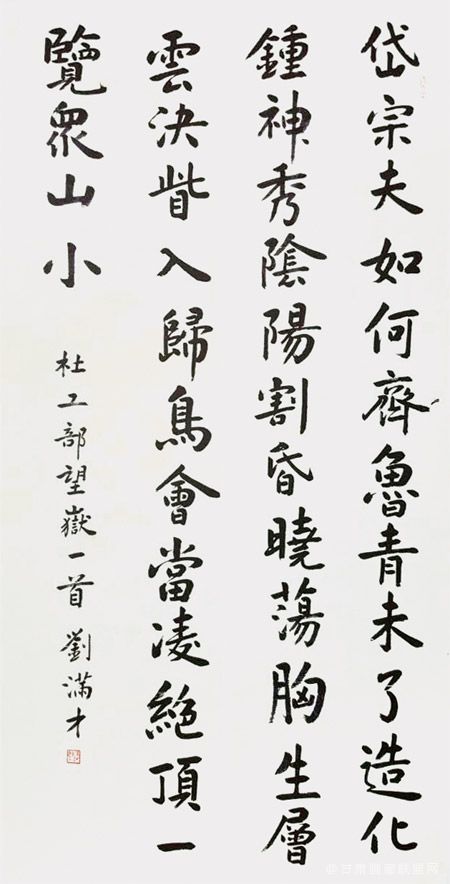 岱宗夫如何齊魯青未了造化
鍾神秀陰陽割昏曉蕩胸生層
雲決眥入歸鳥會當凌絕頂一
覽眾山小
杜工部望嶽一首 劉滿才